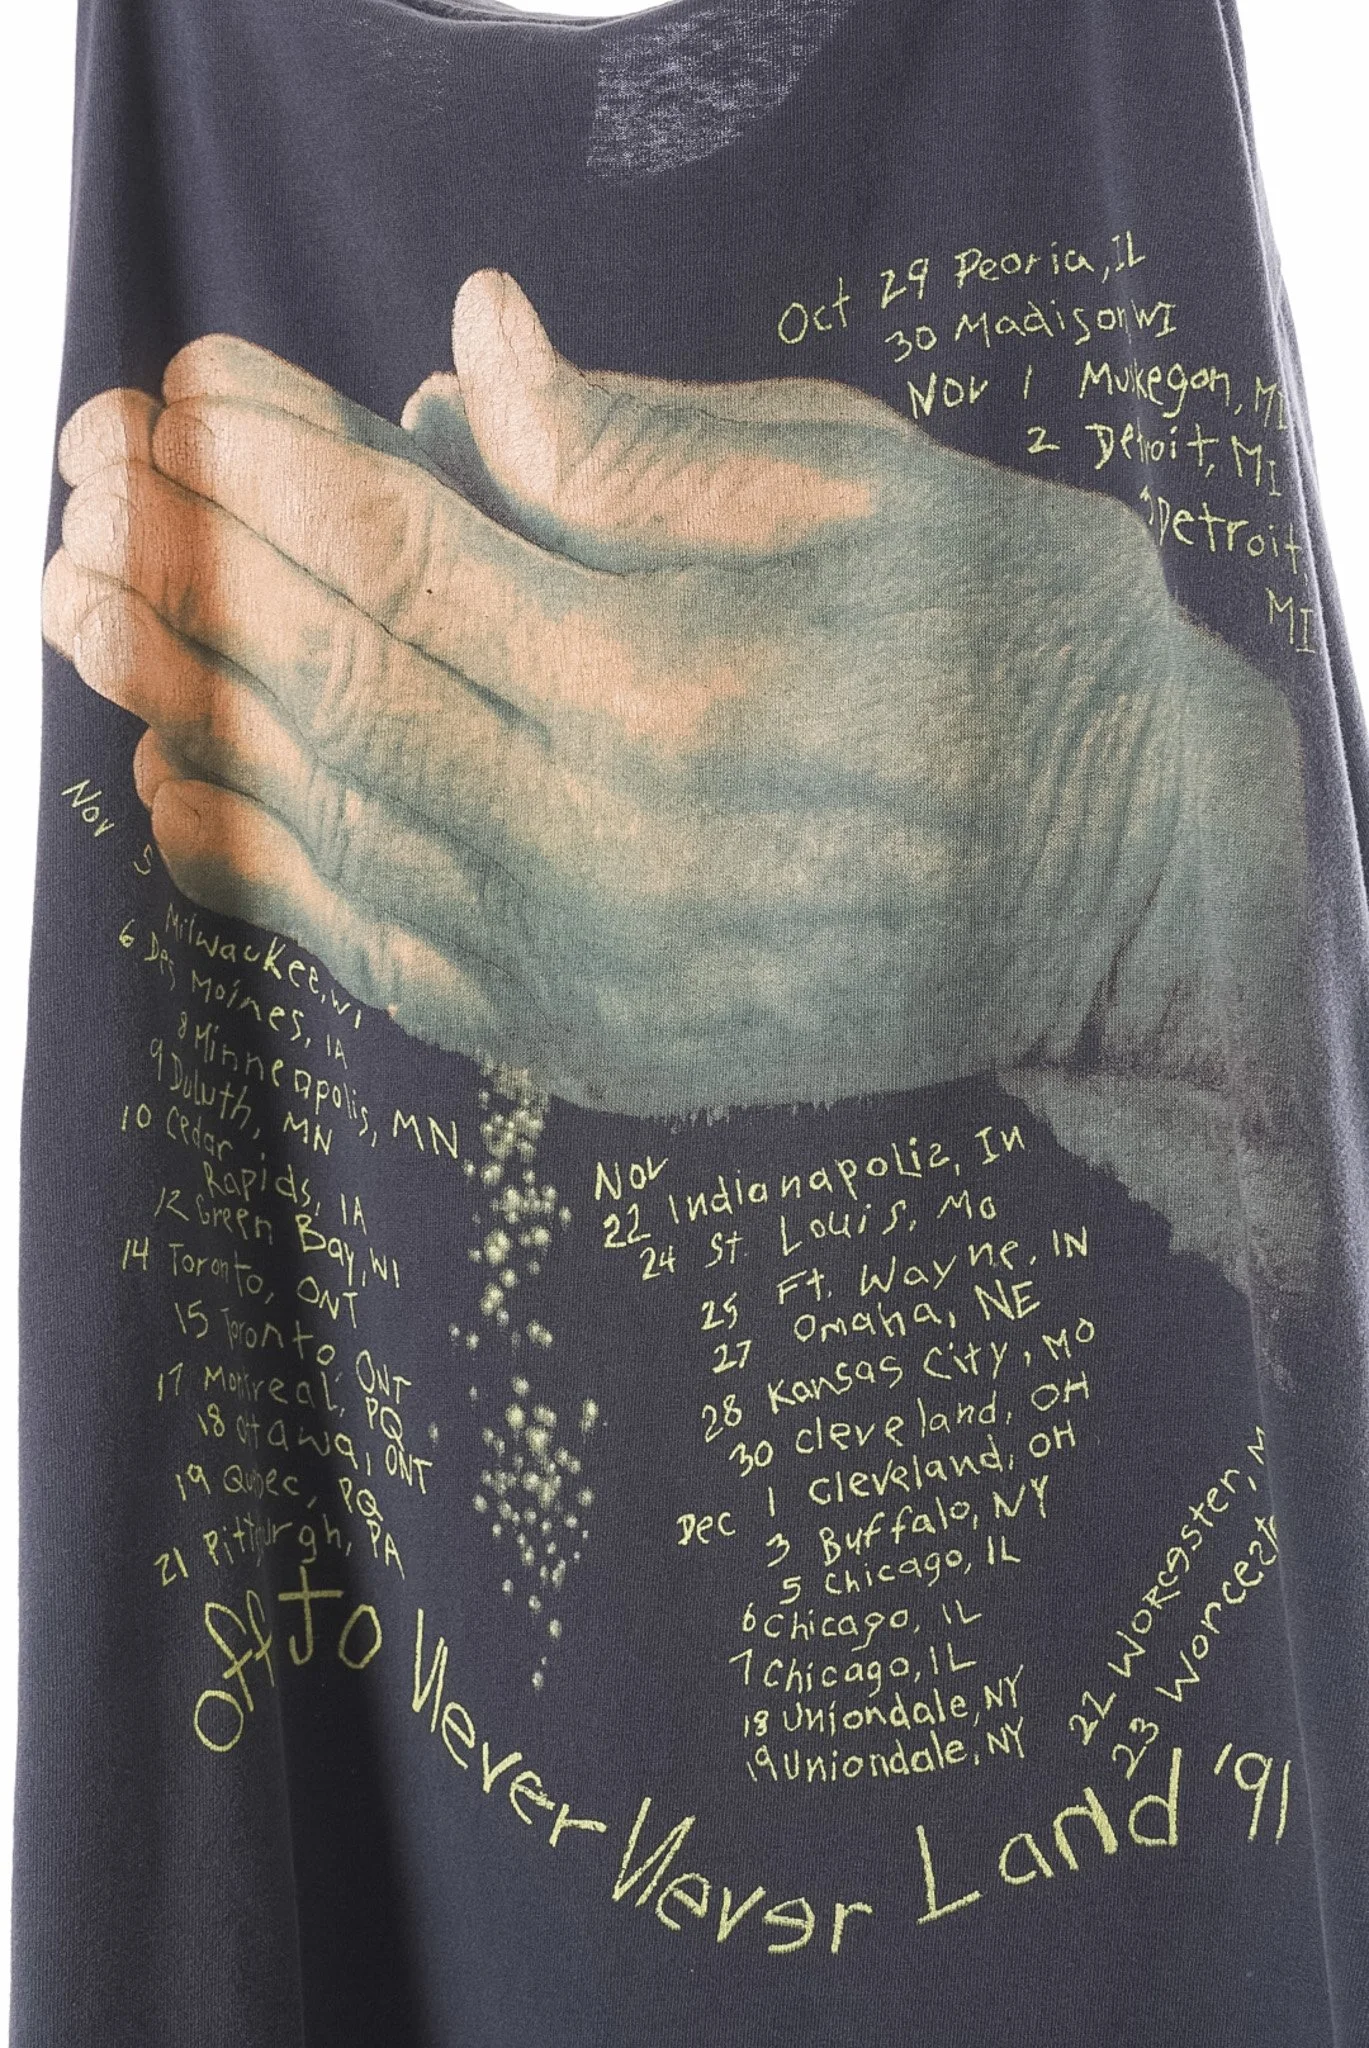 Oct 29 Peoria, IL
30 Madison, WI
Nov 1 Muskegon, MI
2 Detroit, MI
3 Detroit,
MI
Nov 5
Milwaukee, WI
6 Des Moines, IA
8 Minneapolis, MN
9 Duluth, MN
10 Cedar
Rapids, IA
12 Green Bay, WI
14 Toronto, ONT
15 Toronto ONT
17 Montreal, PQ
18 Ottawa, ONT
19 Quebec, PQ
21 Pittsburgh, PA
Nov
22 Indianapolis, In
24 St. Louis, MO
25 Ft. Wayne, IN
27 Omaha, NE
28 Kansas City, MO
30 Cleveland, OH
Dec 1 Cleveland, OH
3 Buffalo, NY
5 Chicago, IL
6 Chicago, IL
7 Chicago, IL
18 Uniondale, NY
19 Uniondale, NY
22 Worcester,
23
off to Never Never Land '91